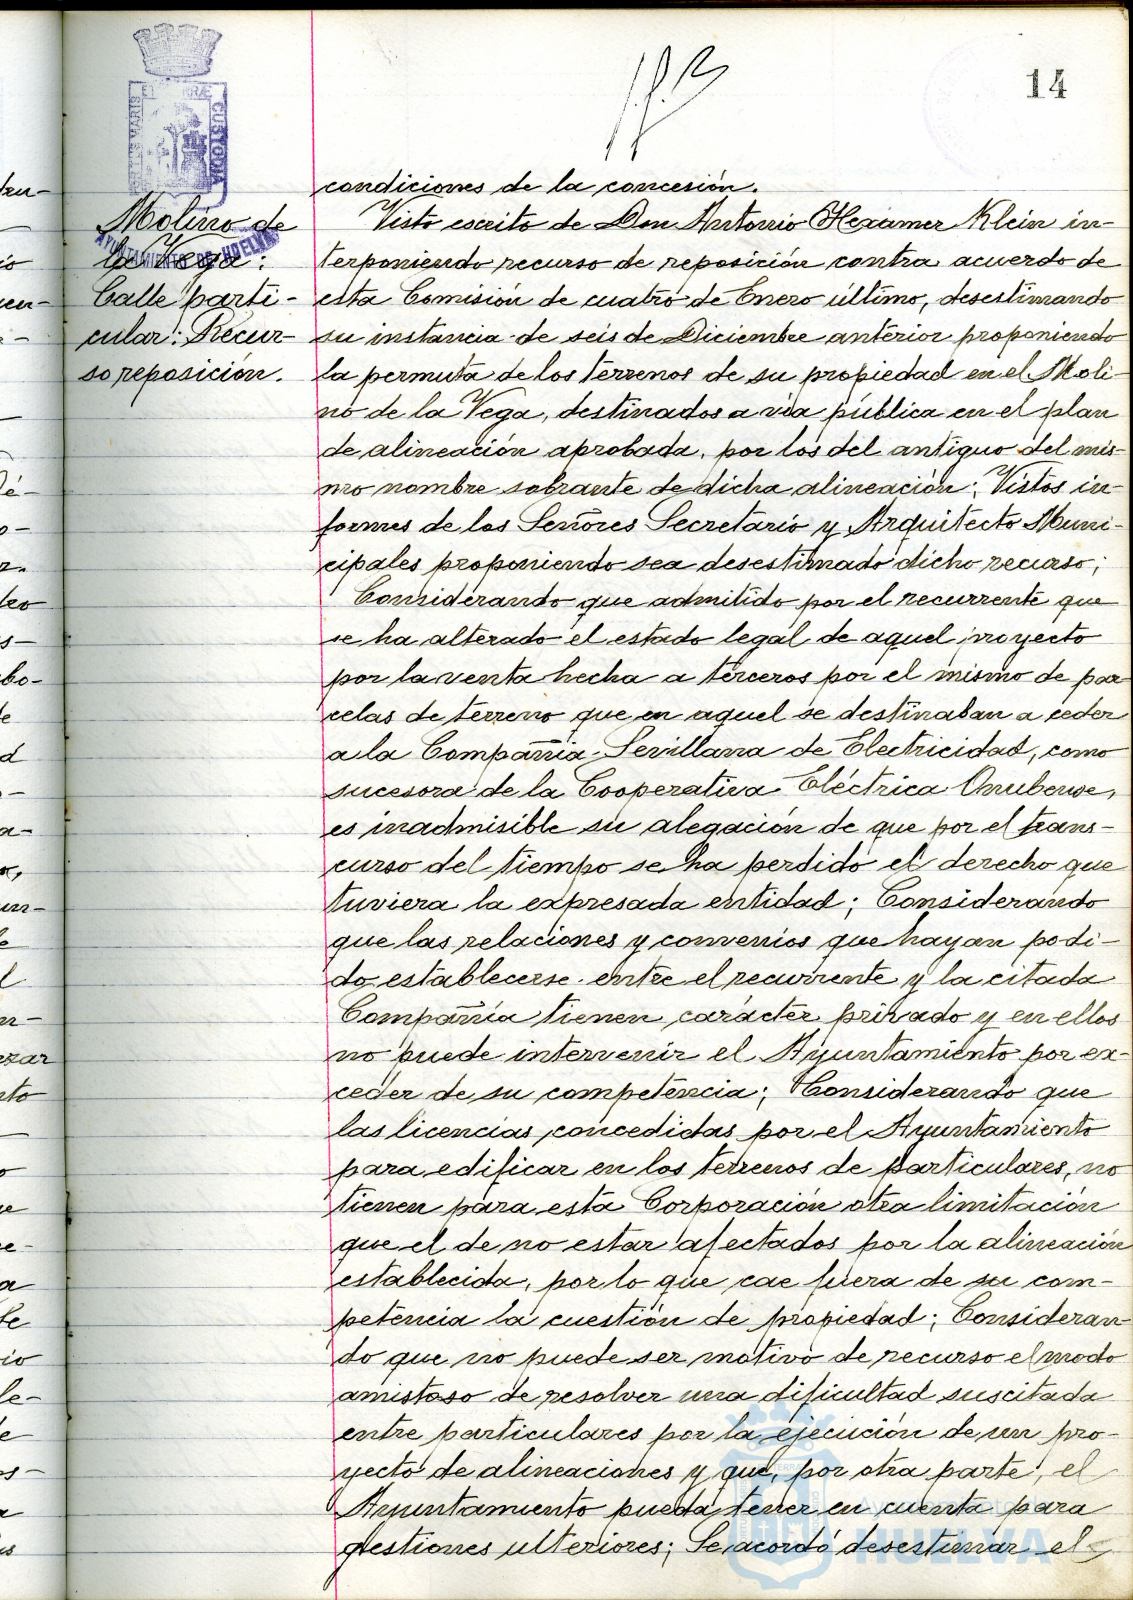 14
condiciones de la concesión.
Molino de
la Vega:
Calle parti-
cular: Recur-
so reposición.
Visto escrito de Don Antonio Hexamer Klein in-
terponiendo recurso de reposición contra acuerdo de
esta Comisión de cuatro de Enero último, desestimando
su instancia de seis de Diciembre anterior proponiendo
la permuta de los terrenos de su propiedad en el Moli-
no de la Vega, destinados a via pública en el plan
de alineación aprobada, por los del antiguo del mis-
mo nombre sobrante de dicha alineación; Vistos in-
formes de los Señores Secretario y Arquitecto Muni-
cipales proponiendo sea desestimado dicho recurso;
Considerando que admitido por el recurrente que
se ha alterado el estado legal de aquel proyecto
por la venta hecha a terceros por el mismo de par
celas de terreno que en aquel se destinaban a ceder
a la Compañía Sevillana de Electricidad, como
sucesora de la Cooperativa Eléctrica Onubense,
es inadmisible su alegación de que por el trans-
curso del tiempo se ha perdido el derecho que
tuviera la expresada entidad; Considerando
que las relaciones y convenios que hayan podi-
do establecerse entre el recurrente y la citada
Compañía tienen carácter privado y en ellos
no puede intervenir el Ayuntamiento por ex-
ceder de su competencia; Considerando que
las licencias concedidas por el Ayuntamiento
para edificar en los terrenos de particulares, no
tienen para esta Corporación otra limitación
que el de no estar afectados por la alineación
establecida, por lo que cae fuera de su com-
petencia la cuestión de propiedad; Consideran-
do que no puede ser motivo de recurso el modo
amistoso de resolver una dificultad suscitada
entre particulares por la ejecución de un pro-
yecto de alineaciones y que, por otra parte, el
Ayuntamiento pueda tener en cuenta para
gestiones ulteriores; Se acordó desestimar el
AYUNTAMIENTO DE HUELVA
CUSTODIA
HUELVA